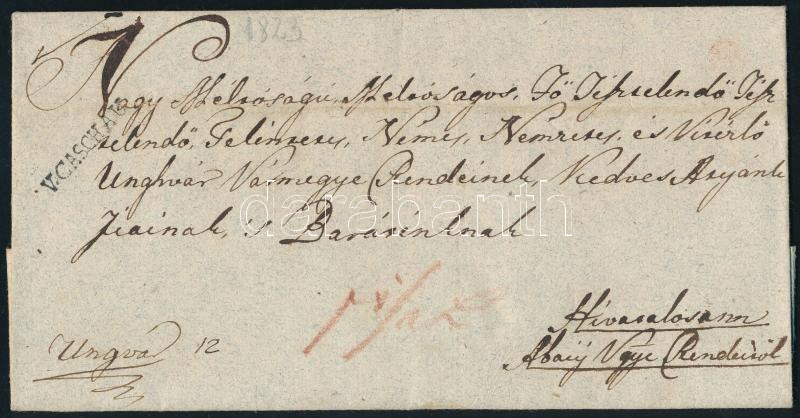 1823
V. CASCHAU
Nagy Méltóságú, Méltóságos, Fő Tisztelendő Tisz
telendő, Tekintetes, Nemes, Nemzetes, és Vitézlő
Unghvár Vármegye Rendeinek, Kedves Atyánk
fiainak, 's Barátinknak
darabanth
Hivatalosann
Abaúj Vgye Rendeitől
Ungvár 12